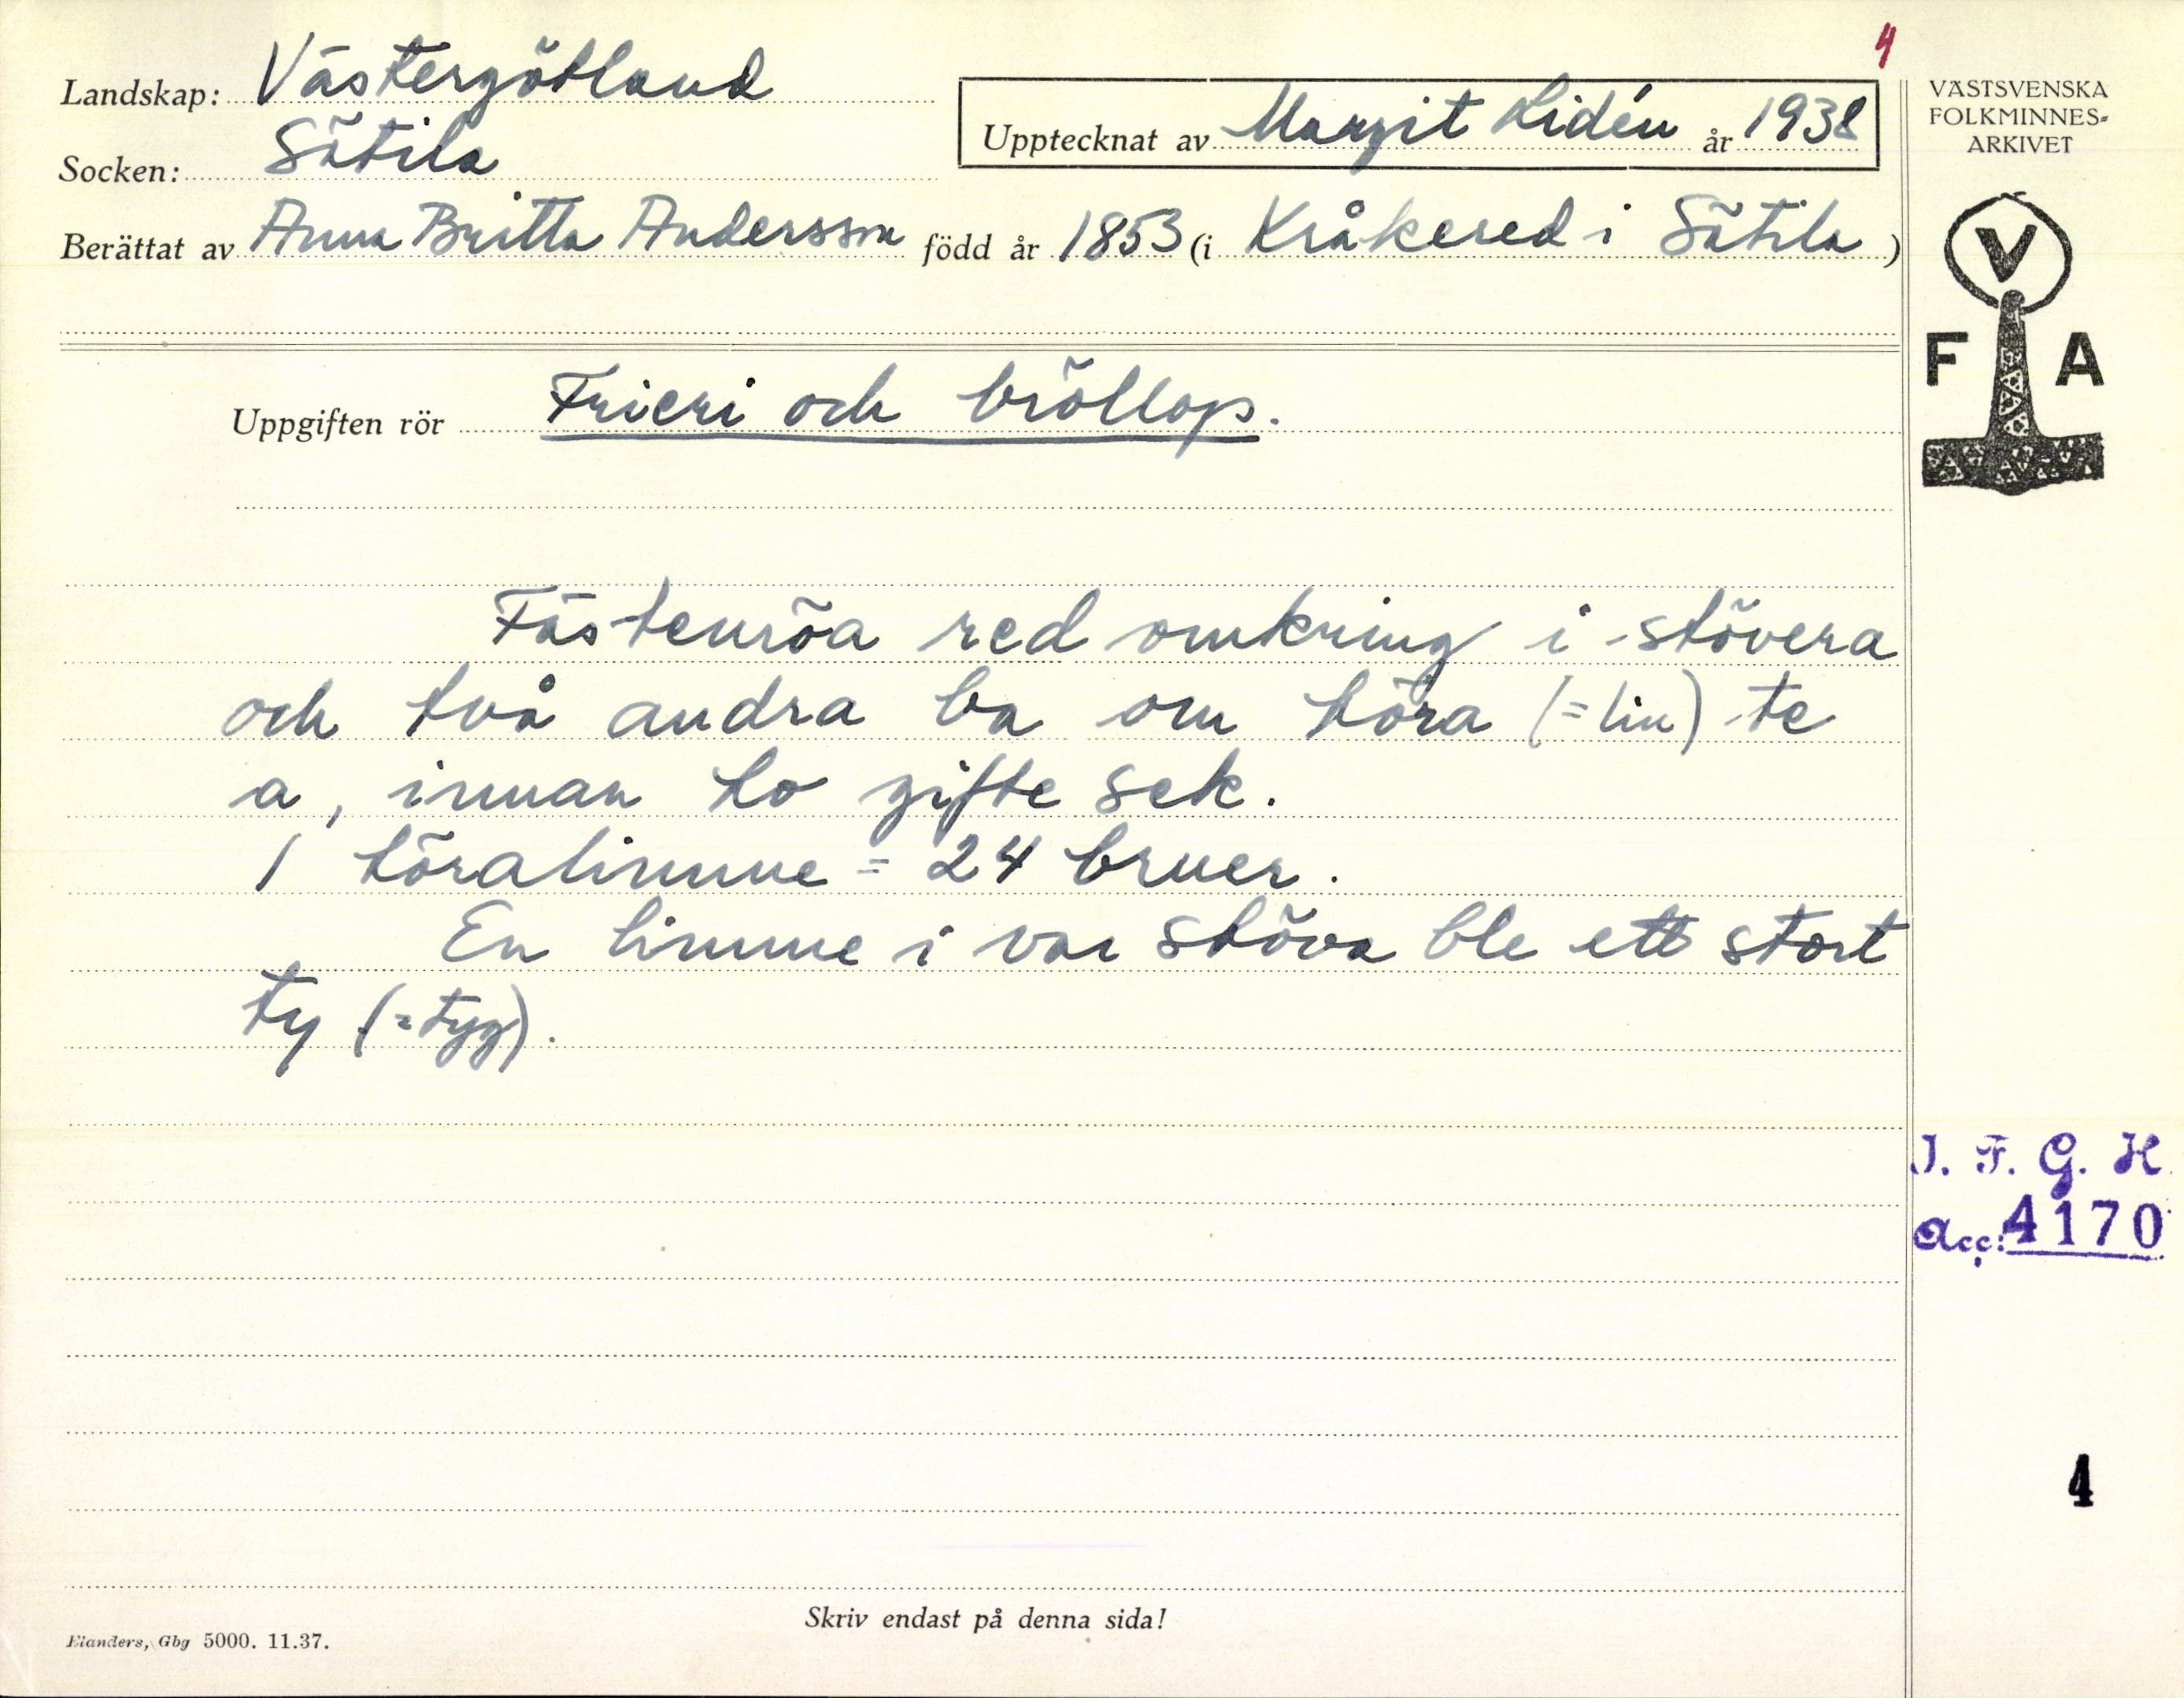 4
Landskap: Västergötland
Socken: Sätila
Upptecknat av Margit Lidén år 1938
Berättat av Anna Britta Andersson född år 1853 (i Kråkered i Sätila)
VÄSTSVENSKA
FOLKMINNES-
ARKIVET
V
F A
Uppgiften rör Frieri och bröllop.
Fästemöa red omkring i stövera
och två andra ba om höra (=lin) te
a, innan ho gifte sek.
1 höralimme = 24 bruer.
En limme i var stöva ble ett stort
ty (=tyg).
I. F. G. H.
Acc: 4170
4
Skriv endast på denna sida!
Elanders, Gbg 5000. 11.37.